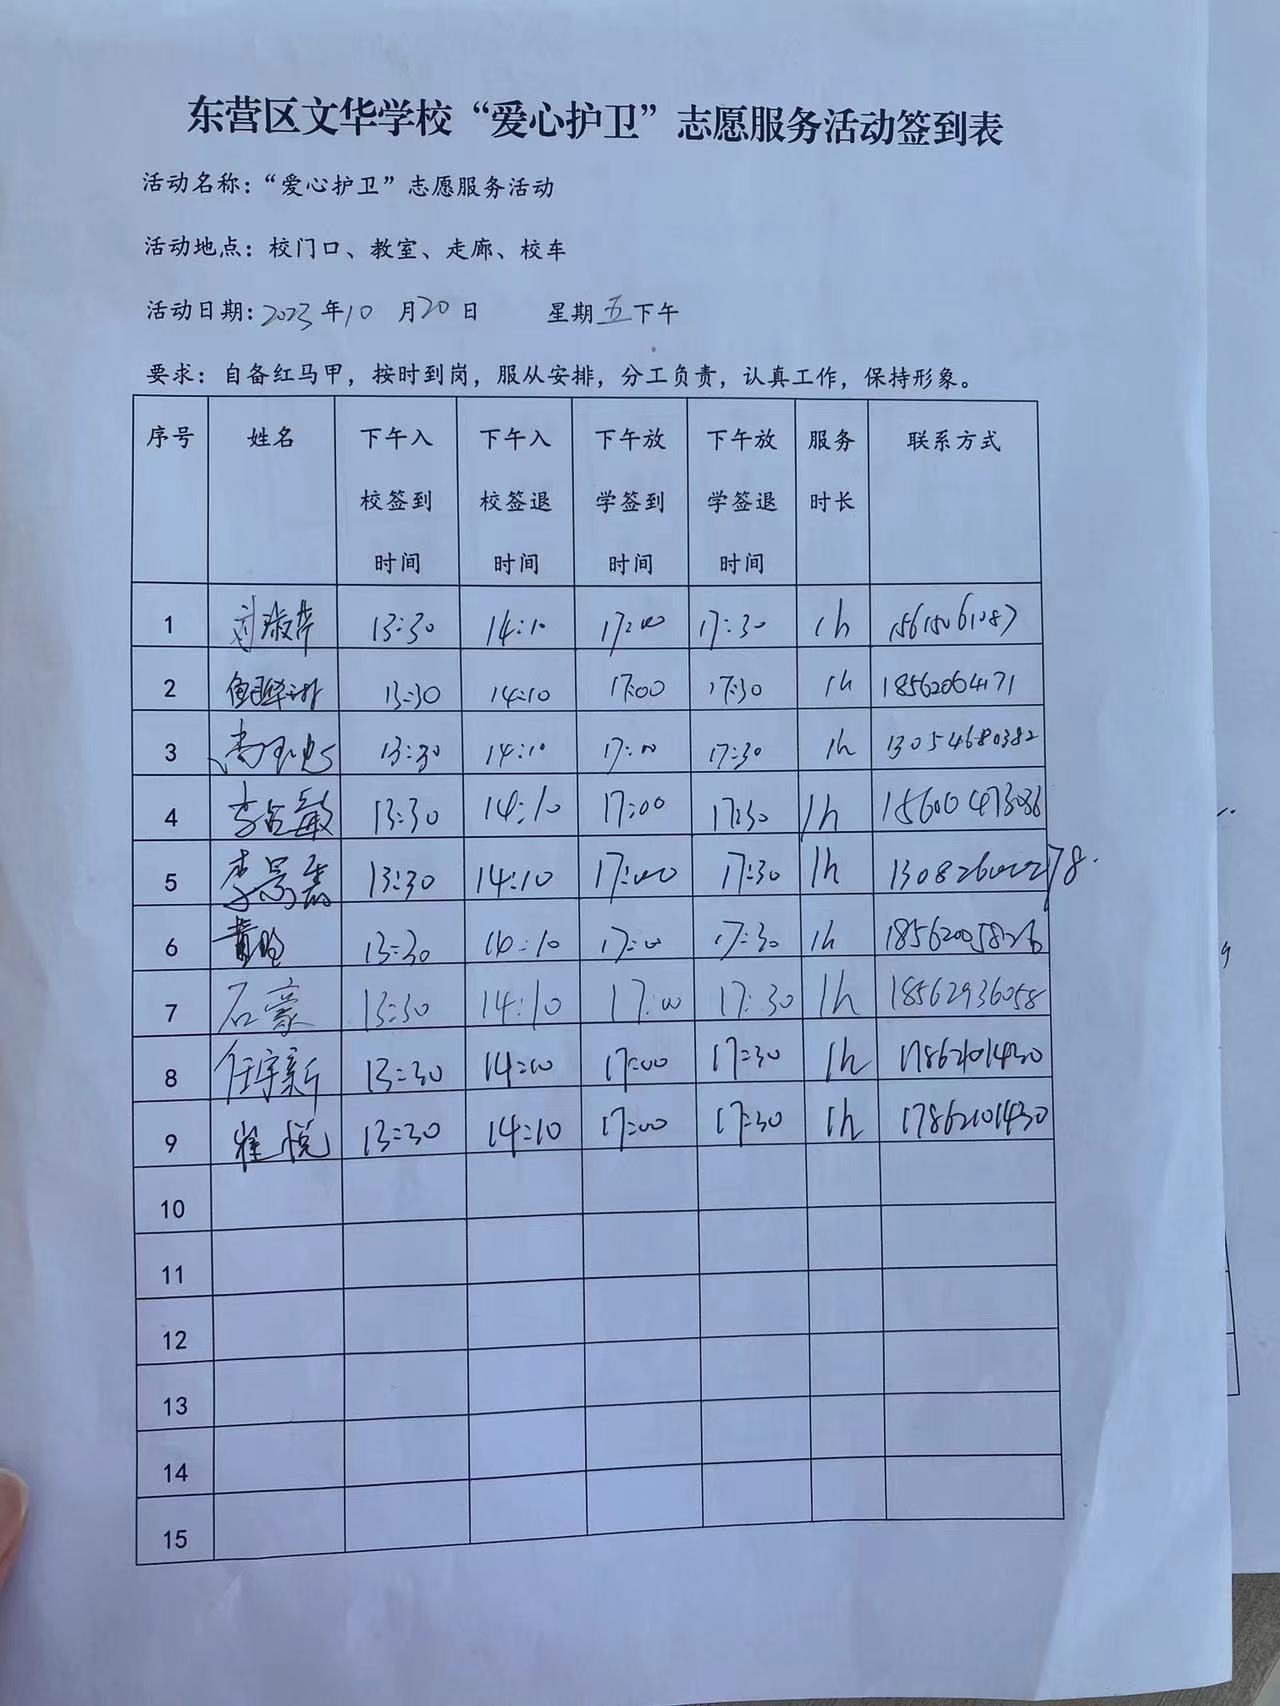 东营区文华学校“爱心护卫”志愿服务活动签到表
活动名称：“爱心护卫”志愿服务活动
活动地点：校门口、教室、走廊、校车
活动日期：2023年10月20日 星期五下午
要求：自备红马甲，按时到岗，服从安排，分工负责，认真工作，保持形象。
序号 姓名 下午入校签到时间 下午入校签退时间 下午放学签到时间 下午放学签退时间 服务时长 联系方式
1 13:30 14:10 17:00 17:30 1h 15615061087
2 13:30 14:10 17:00 17:30 1h 18562064171
3 13:30 14:10 17:00 17:30 1h 13054680382
4 13:30 14:10 17:00 17:30 1h
5 李景磊 13:30 14:10 17:00 17:30 1h
6 13:30 14:10 17:00 17:30 1h
7 石豪 13:30 14:10 17:00 17:30 1h 18562936058
8 任宇新 13:30 14:10 17:00 17:30 1h 17862101430
9 崔悦 13:30 14:10 17:00 17:30 1h 17862101430
10
11
12
13
14
15